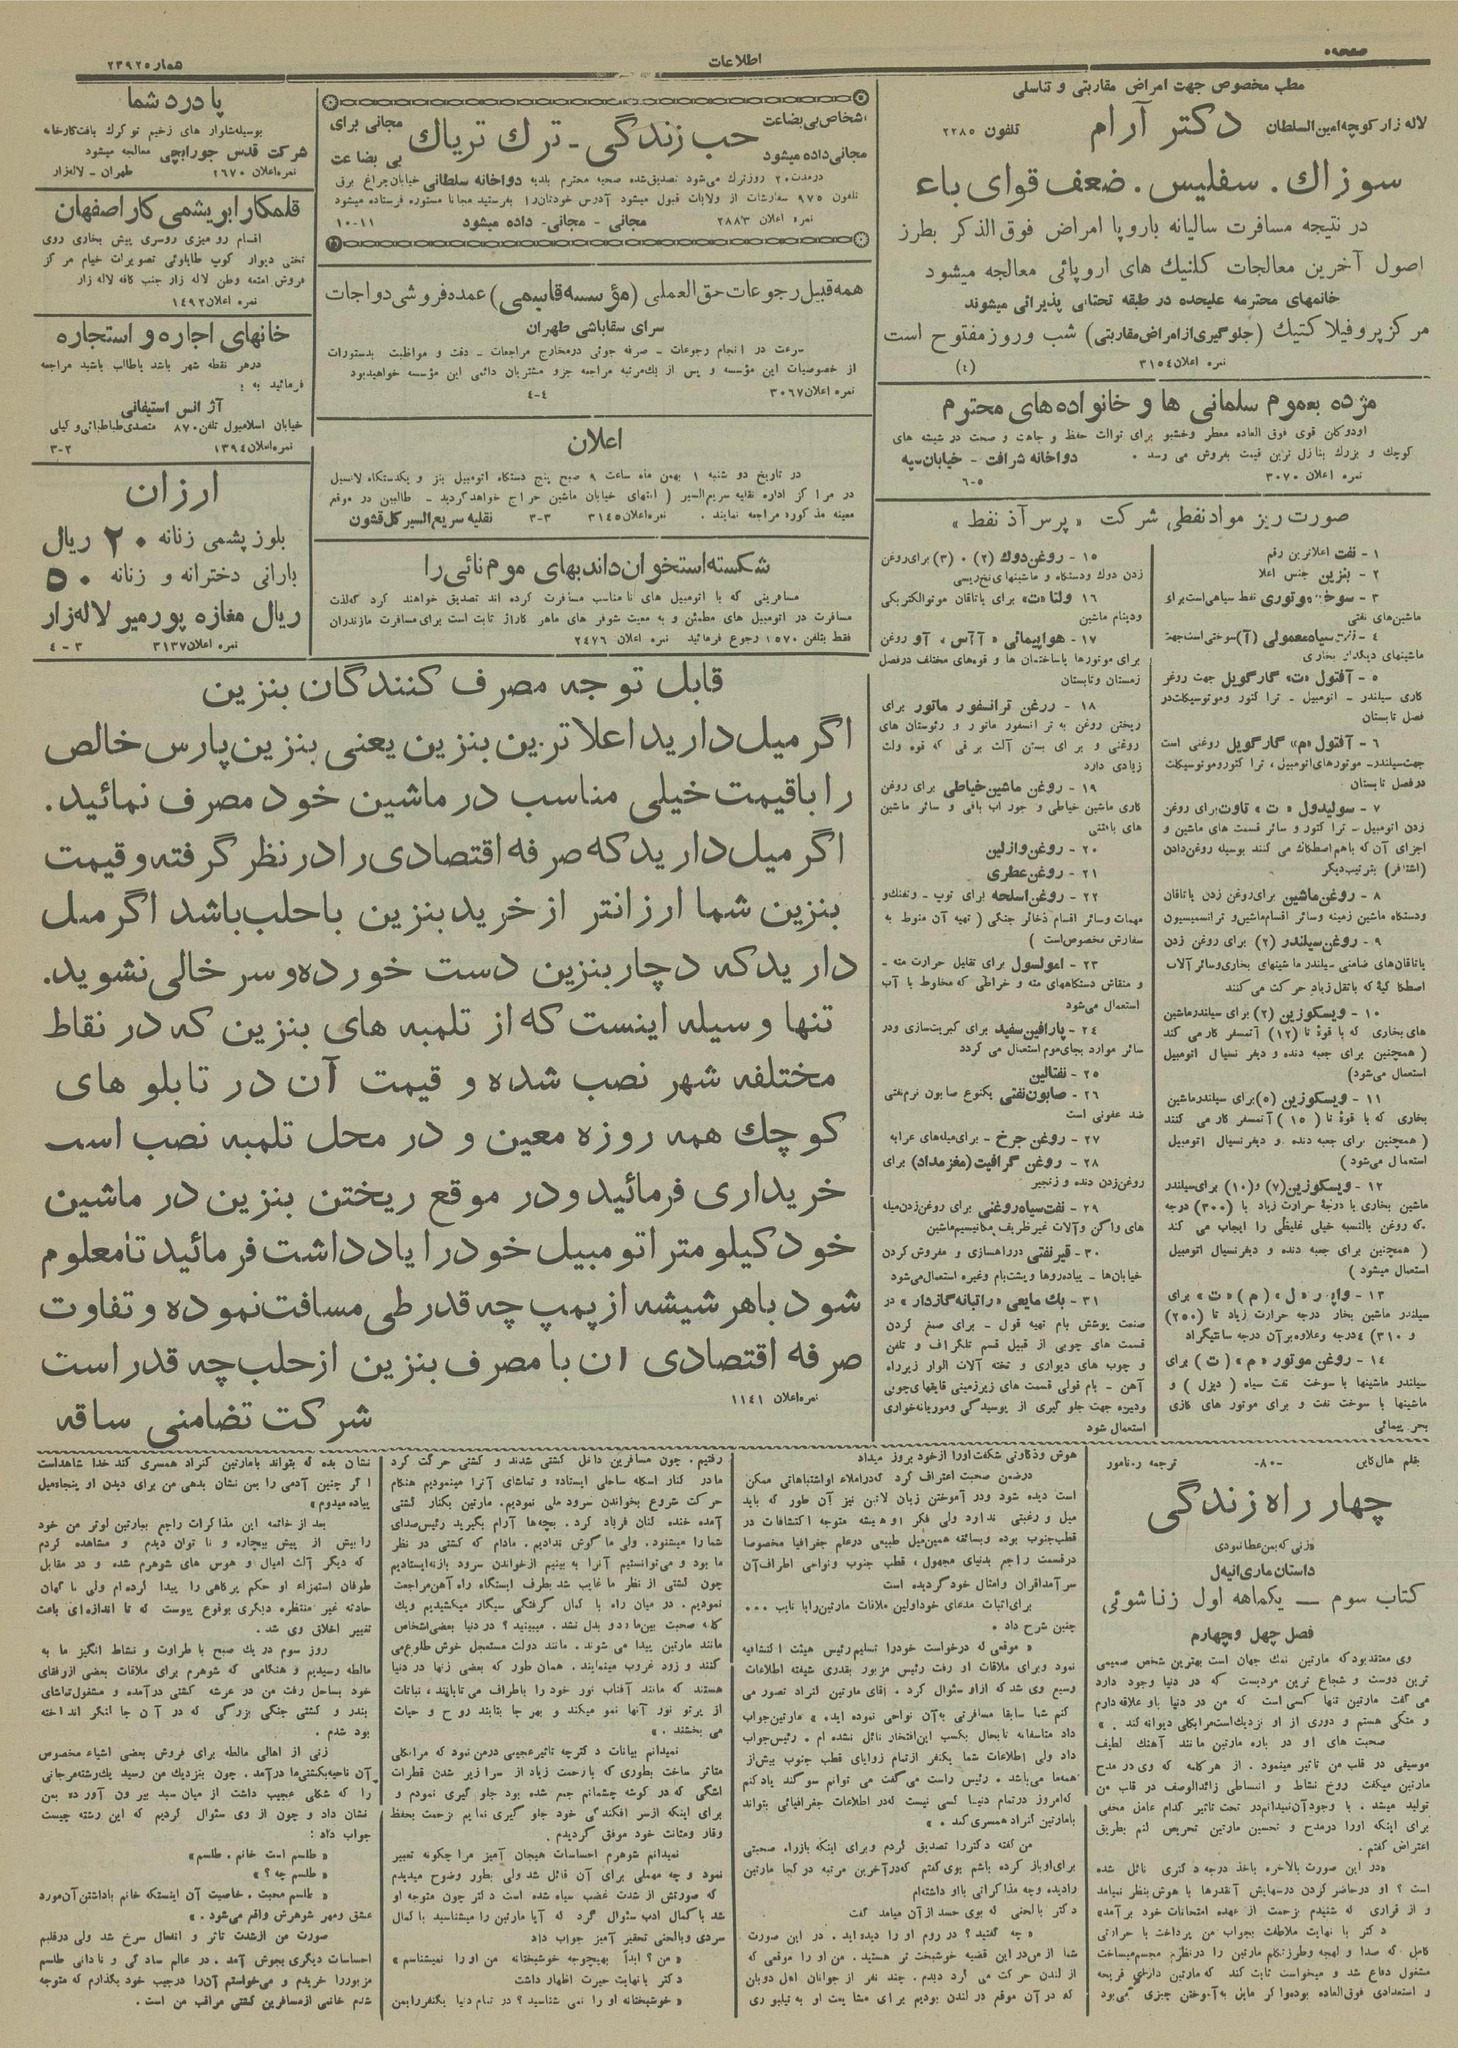 اطلاعات
مطب مخصوص جهت امراض مقاربتی و تناسلی
لاله زار کوچه امین السلطان دکتر آرام تلفون ۲۲۸۵
سوزاك . سفلیس . ضعف قوای باء
در نتیجه مسافرت سالیانه باروپا امراض فوق الذکر بطرز
اصول آخرین معالجات کلنیك های اروپائی معالجه میشود
خانمهای محترمه علیحده در طبقه تحتانی پذیرائی میشوند
مرکز پروفیلاکتیك (جلوگیری از امراض مقاربتی) شب و روز مفتوح است
نمره اعلان ۳۱۵۴ (٤)
مژده بعموم سلمانی ها و خانواده های محترم
اودوکلن قوی فوق العاده معطر وخشبو برای توالت حفظ و جاهت و صحت در شیشه های
کوچك و بزرك بنازل ترین قیمت بفروش می رسد . دواخانه شرافت - خیابان سپه
نمره اعلان ۳۰۷۰ ۶-۵
صورت ریز مواد نفطی شرکت « پرس آذ نفط »
۱ - نفت اعلاترین رقم
۲ - بنزین جنس اعلا
۳ - سوخت موتوری نفط سیاهی است برای
ماشین‌های نفتی
٤ - نفت سیاه معمولی (آ) سوختی است جهت
ماشینهای دیگدار بخاری
۵ - آفتول «ت» گارگویل جهت روغن
کاری سیلندر - اتومبیل - ترا کتور و موتوسیکلت در
فصل تابستان
۶ - آفتول «م» گارگویل روغنی است
جهت سیلندر - موتورهای اتومبیل ، ترا کتور و موتوسیکلت
در فصل تابستان
۷ - سولیدول « ت » تاوت برای روغن
زدن اتومبیل - ترا کتور و سائر قسمت های ماشین و
اجزای آن که باهم اصطکاك می کنند بوسیله روغن دادن
۸ - روغن ماشین برای روغن زدن یاتاقان
ودستگاه ماشین زمینه وسائر اقسام ماشین و ترانسمیسیون
۹ - روغن سیلندر (۲) برای روغن زدن
یاتاقان‌های ضامنی سیلندر ماشینهای بخاری وسائر آلات
اصطکاکیۀ که باثقل زیاد حرکت می کنند
۱۰ - ویسکوزین (۲) برای سیلندر ماشین
های بخاری که با قوۀ تا (۱۲) آتمسفر کار می کند
( همچنین برای جعبه دنده و دیفر نسیال اتومبیل
استعمال می‌شود)
۱۱ - ویسکوزین (۵) برای سیلندر ماشین
بخاری که با قوۀ تا (۱۵) آتمسفر کار می کنند
( همچنین برای جعبه دنده و دیفرنسیال اتومبیل
استعمال می‌شود )
۱۲ - ویسکوزین (۷) و (۱۰) برای سیلندر
ماشین بخاری با درجۀ حرارت زیاد با (۳۰۰) درجه
که روغن بالنسبه خیلی غلیظی را ایجاب می کند
( همچنین برای جعبه دنده و دیفرنسیال اتومبیل
استعمال میشود )
۱۳ - واپر «ل» (م) «ت» برای
سیلندر ماشین بخار درجه حرارت زیاد تا (۲۵۰)
و ۳۱۰) درجه وعلاوه برآن درجه سانتیگراد
۱٤ - روغن موتور «م» (ت) برای
سیلندر ماشینها با سوخت نفت سیاه (دیزل) و
ماشینها با سوخت نفت و برای موتور های گازی
بحر پیمائی
۱۵ - روغن دوك (۲) ۰ (۳) برای روغن
زدن دوك ودستگاه و ماشینهای نخ ریسی
۱۶ - ولتا «ت» برای یاتاقان موتوالکتریکی
ودینام ماشین
۱۷ - هواپیمائی « آآس » آو روغن
برای موتورها باساختمان ها و قوه‌های مختلف در فصل
زمستان وتابستان
۱۸ - روغن ترانسفور ماتور برای
ریختن روغن به ترانسفور ماتور و رئوستان های
روغنی و برای بستن آلت برقی که قوه ولت
زیادی دارد
۱۹ - روغن ماشین خیاطی برای روغن
کاری ماشین خیاطی و جوراب بافی و سائر ماشین
های بافتنی
۲۰ - روغن وازلین
۲۱ - روغن عطری
۲۲ - روغن اسلحه برای توپ - وتفنك و
مهمات وسائر اقسام ذخائر جنگی ( تهیه آن منوط به
سفارش مخصوص است )
۲۳ - امولسول برای تقلیل حرارت مته -
و منقاش دستگاههای مته و خراطی که مخلوط با آب
استعمال می‌شود
۲٤ - پارافین سفید برای کبریت سازی ودر
سائر موارد بجای موم استعمال می گردد
۲۵ - نفتالین
۲۶ - صابون نفتی یکنوع صابون نرم نفتی
ضد عفونی است
۲۷ - روغن چرخ - برای میله‌های عرابه
۲۸ - روغن گرافیت (مغز مداد) برای
روغن زدن دنده و زنجیر
۲۹ - نفت سیاه روغنی برای روغن زدن میله
های واگن وآلات غیر ظریف مکانیسم ماشین
۳۰ - قیر نفتی در راهسازی و مفروش کردن
خیابان‌ها - پیاده‌روها و پشت بام وغیره استعمال می‌شود
۳۱ - بك مایعی «راتبانه گازدار» در
صنعت پوشش بام تهیه قول - برای صمغ کردن
قسمت های چوبی از قبیل قسم تلگراف و تلفن
و چوب های دیواری و تخته آلات الوار زیرراه
آهن - بام قولی قسمت های زیرزمینی قایقهای چوبی
ودیرۀ جهت جلوگیری از پوسیدگی وموریانه خواری
استعمال شود
اشخاص بی بضاعت مجانی داده میشود
حب زندگی - ترك تریاك
مجانی برای بی بضاعت
درمدت ۲۰ روزترك می‌شود تصدیق شده صحیه محترم بلدیه دواخانه سلطانی خیابان چراغ برق
تلفون ۹۷۵ سفارشات از ولایات قبول میشود آدرس خودتان را بفرستید مجانا مستوره فرستاده میشود
نمره اعلان ۲۸۸۳ مجانی - مجانی - داده میشود ۱۱-۱۰
همه قبیل رجوعات حق العملی (مؤسسه قاسمی) عمده فروشی دواجات
سرای سقاباشی طهران
سرعت در انجام رجوعات - صرفه جوئی در مخارج مراجعات - دقت و مواظبت بدستورات
از خصوصیات این مؤسسه و پس از یك مرتبه مراجعه جزو مشتریان دائمی این مؤسسه خواهید بود
نمره اعلان ۳۰۶۷ ٤-٤
اعلان
در تاریخ دو شنبه ۱ بهمن ماه ساعت ۹ صبح پنج دستگاه اتومبیل بنز و یکدستگاه لانسیل
در مرا کز اداره نقلیه سریع السیر ( انتهای خیابان ماشین حراج خواهد گردید - طالبین در موقع
معینه مذکوره مراجعه نمایند . نمره اعلان ۳۱٤۵ ۳-۳ نقلیه سریع السیر کل قشون
شکسته استخوان داند بهای موم نائی را
مسافرینی که با اتومبیل های نامناسب مسافرت کرده اند تصدیق خواهند کرد که لذت
مسافرت در اتومبیل های مطمئن و به معیت شوفر های ماهر کاراژ ثابت است برای مسافرت مازندران
فقط بتلفن ۱۵۷۰ رجوع فرمائید نمره اعلان ۲٤۷۶
پا درد شما
بوسیله شلوار های زخیم تو کرك بافت کارخانه
شرکت قدس جورابچی معالجه میشود
نمره اعلان ۲۶۷۰ طهران - لاله‌زار
قلمکار ابریشمی کار اصفهان
اقسام رو میزی روسری پیش بخاری روی
تختی دیوار کوب طاباوئی تصویرات خیام مر کز
فروش امتعه وطن لاله زار جنب کافه لاله زار
نمره اعلان ۱٤۹۲
خانهای اجاره و استجاره
درهر نقطه شهر باشد باطالب باشید مراجعه
فرمائید به :
آژانس استیفانی
خیابان اسلامبول تلفن ۸۷۰ متصدی طباطبائی وکیلی
نمره اعلان ۱۳۹٤ ۳-۲
ارزان
بلوز پشمی زنانه ۲۰ ریال
بارانی دخترانه و زنانه ۵۰
ریال مغازه پورمیر لاله زار
نمره اعلان ۳۱۳۷ ٤-۳
قابل توجه مصرف کنندگان بنزین
اگر میل دارید اعلا ترین بنزین یعنی بنزین پارس خالص
را باقیمت خیلی مناسب در ماشین خود مصرف نمائید.
اگر میل دارید که صرفه اقتصادی را در نظر گرفته و قیمت
بنزین شما ارزانتر از خرید بنزین باحلب باشد اگر میل
دارید که دچار بنزین دست خورده و سر خالی نشوید.
تنها وسیله اینست که از تلمبه های بنزین که در نقاط
مختلفه شهر نصب شده و قیمت آن در تابلو های
کوچك همه روزه معین و در محل تلمبه نصب است
خریداری فرمائید و در موقع ریختن بنزین در ماشین
خود کیلومتر اتومبیل خود را یادداشت فرمائید تا معلوم
شود باهر شیشه از پمپ چه قدر طی مسافت نموده و تفاوت
صرفه اقتصادی آن با مصرف بنزین از حلب چه قدر است
نمره اعلان ۱۱٤۱
شرکت تضامنی ساقه
بقلم هال کاین -۸۰- ترجمه ر.نامور
چهار راه زندگی
«زنی که بمن عطا نمودی»
داستان ماری انیل
کتاب سوم — یکماهه اول زناشوئی
فصل چهل وچهارم
وی معتقد بود که مارتین نمك جهان است بهترین شخص صمیمی
ترین دوست و شجاع ترین مردیست که در دنیا وجود دارد
می گفت مارتین تنها کسی است که من در دنیا باو علاقه دارم
و متکی هستم و دوری از او نزدیك است مرا بکلی دیوانه کند . »
صحبت های او در باره مارتین مانند آهنك لطیف
موسیقی در قلب من تاثیر مینمود . از هر کلمه که وی در مدح
مارتین میگفت روح نشاط و انبساطی زائدالوصف در قلب من
تولید میشد . با وجود آن نمیدانم در تحت تاثیر کدام عامل مخفی
برای اینکه اورا درمدح و تحسین مارتین تحریص کنم بطریق
اعتراض گفتم .
«در این صورت بالاخره باخذ درجه دکتری نائل شده
است ؟ او در حاضر کردن درسهایش آنقدرها با هوش بنظر نمیامد
و از قراری که شنیدم بزحمت از عهده امتحانات خود برآمد»
دکتر با نهایت ملاطفت بجواب من پرداخت با حرارتی
کامل که صدا و لهجه وطرز تکلم مارتین را در نظرم مجسم میساخت
مشغول دفاع شد و میخواست ثابت کند که مارتین دارای قریحه
و استعدادی فوق العاده بوده و اگر مایل به آموختن چیزی می بود
هوش وذکاوتی شگفت اورا از خود بروز میداد
درضمن صحبت اعتراف کرد که در املاء او اشتباهاتی ممکن
است دیده شود ودر آموختن زبان لاتین نیز آن طور که باید
میل و رغبتی ندارد ولی فکر او همیشه متوجه اکتشافات در
قطب جنوب بوده وبسائقه همین میل طبیعی در علم جغرافیا مخصوصا
در قسمت راجع بدنیای مجهول ، قطب جنوب ونواحی اطراف آن
سر آمد اقران وامثال خود گردیده است
برای اثبات مدعای خود اولین ملاقات مارتین را با نایب ...
چنین شرح داد .
« موقعی که درخواست خودرا تسلیم رئیس هیئت اکتشافیه
نمود وبرای ملاقات او رفت رئیس مزبور بقدری شیفته اطلاعات
وسیع وی شد که از او سئوال کرد . آقای مارتین کنراد تصور می
کنم شما سابقا مسافرتی به آن نواحی نموده اید» مارتین جواب
داد متاسفانه تابحال بکسب این افتخار نائل نشده ام . رئیس جواب
داد ولی اطلاعات شما یکنفر از تمام زوایای قطب جنوب بیش از
همه ما می‌باشد . رئیس راست می‌گفت می توانم سوگند یاد کنم
که امروز در تمام دنیا کسی نیست که در اطلاعات جغرافیائی بتواند
بامارتین کنراد همسری کند . »
من گفته دکتر را تصدیق کردم وبرای اینکه بازراه صحبتی
برای او باز کرده باشم بوی گفتم که در آخرین مرتبه در کجا مارتین
رادیده وچه مذاکراتی بااو داشته‌ام
دکتر بالحنی که بوی حسد از آن میامد گفت
« چه گفتید ؟ در روم او را دیده اید . در این صورت
شما از من در این قضیه خوشبخت تر هستید . من او را موقعی که
از لندن حرکت می کرد دیدم . چند نفر از جوانان اهل دوبان
که در آن موقع در لندن بودیم برای مشایعت او به تیلبوری
رفتیم . چون مسافرین داخل کشتی شدند و کشتی حرکت کرد
مادر کنار اسکله ساحلی ایستاده و تماشای آنرا مینمودیم هنگام
حرکت شروع بخواندن سرود ملی نمودیم . مارتین بکنار کشتی
آمده خنده کنان فریاد کرد . بچه‌ها آرام بگیرید رئیس صدای
شما را میشنود . ولی ما گوش ندادیم . مادام که کشتی در نظر
ما بود و می‌توانستیم آنرا به بینیم از خواندن سرود بازنه ایستادیم
چون کشتی از نظر ما غایب شد بطرف ایستگاه راه آهن مراجعت
نمودیم . در میان راه با کمال گرفتگی سیگار میکشیدیم ویك
کلمه صحبت بین ما رد و بدل نشد . میبینید ؟ در دنیا بعضی اشخاص
مانند مارتین پیدا می شوند . مانند دولت مستعجل خوش طلوع می
کنند و زود غروب مینمایند . همان طور که بعضی زنها در دنیا
هستند که مانند آفتاب نور خود را باطراف می‌تابانند ، نباتات
از پرتو نور آنها نمو میکند و بهر جا بتابند روح و حیات
می بخشند . »
نمیدانم بیانات دکتر چه تاثیر عجیبی در من نمود که مرا بکلی
متاثر ساخت بطوری که بازحمت زیاد از سرازیر شدن قطرات
اشگی که در گوشه چشمانم جمع شده بود جلوگیری نمودم و
برای اینکه از سر افکندگی خود جلو گیری نمایم بزحمت بحفظ
وقار ومتانت خود موفق گردیدم .
نمیدانم شوهرم احساسات هیجان آمیز مرا چگونه تعبیر
نمود و چه مهملی برای آن قائل شد ولی بطور وضوح میدیدم
که صورتش از شدت غضب سیاه شده است دکتر چون متوجه او
شد با کمال ادب سئوال کرد که آیا مارتین را میشناسید با کمال
سردی وبالحنی تحقیر آمیز جواب داد
« من ؟ ابداً بهیچوجه خوشبختانه من او را نمیشناسم »
دکتر با نهایت حیرت اظهار داشت
« خوشبختانه او را نمی شناسید ؟ در تمام دنیا یکنفر را بمن
نشان بده که بتواند بامارتین کنراد همسری کند خدا شاهداست
اگر چنین آدمی را بمن نشان بدهی من برای دیدن او پنجاه میل
پیاده میدوم »
بعد از خاتمه این مذاکرات راجع بمارتین لوتر من خود
را بیش از پیش بیچاره و نا توان دیدم و مشاهده کردم
که دیگر آلت امیال و هوس های شوهرم شده و در مقابل
طوفان استهزاء او حکم پرکاهی را پیدا کرده ام ولی ناگهان
حادثه غیر منتظره دیگری بوقوع پیوست که تا اندازه ای باعث
تغییر اخلاق وی شد .
روز سوم در یك صبح با طراوت و نشاط انگیز ما به
مالطه رسیدیم و هنگامی که شوهرم برای ملاقات بعضی از رفقای
خود بساحل رفت من در عرشه کشتی درآمده و مشغول تماشای
بندر و کشتی جنگی بزرگی که در آن جا لنگر انداخته
بود شدم .
زنی از اهالی مالطه برای فروش بعضی اشیاء مخصوص
آن ناحیه بکشتی ما درآمد . چون بنزدیك من رسید یك رشته مرجانی
را که شکلی عجیب داشت از میان سبد بیرون آورده بمن
نشان داد و چون از وی سئوال کردیم که این رشته چیست
جواب داد :
« طلسم است خانم . طلسم»
« طلسم چه ؟ »
« طلسم محبت . خاصیت آن اینستکه خانم باداشتن آن مورد
عشق ومهر شوهرش واقع می‌شود . »
صورت من از شدت تاثر و انفعال سرخ شد ولی در قلبم
احساسات دیگری بجوش آمد . در عالم سادگی و نادانی طلسم
مزبور را خریدم و می‌خواستم آن را در جیب خود بگذارم که متوجه
شدم خانمی از مسافرین کشتی مراقب من است .